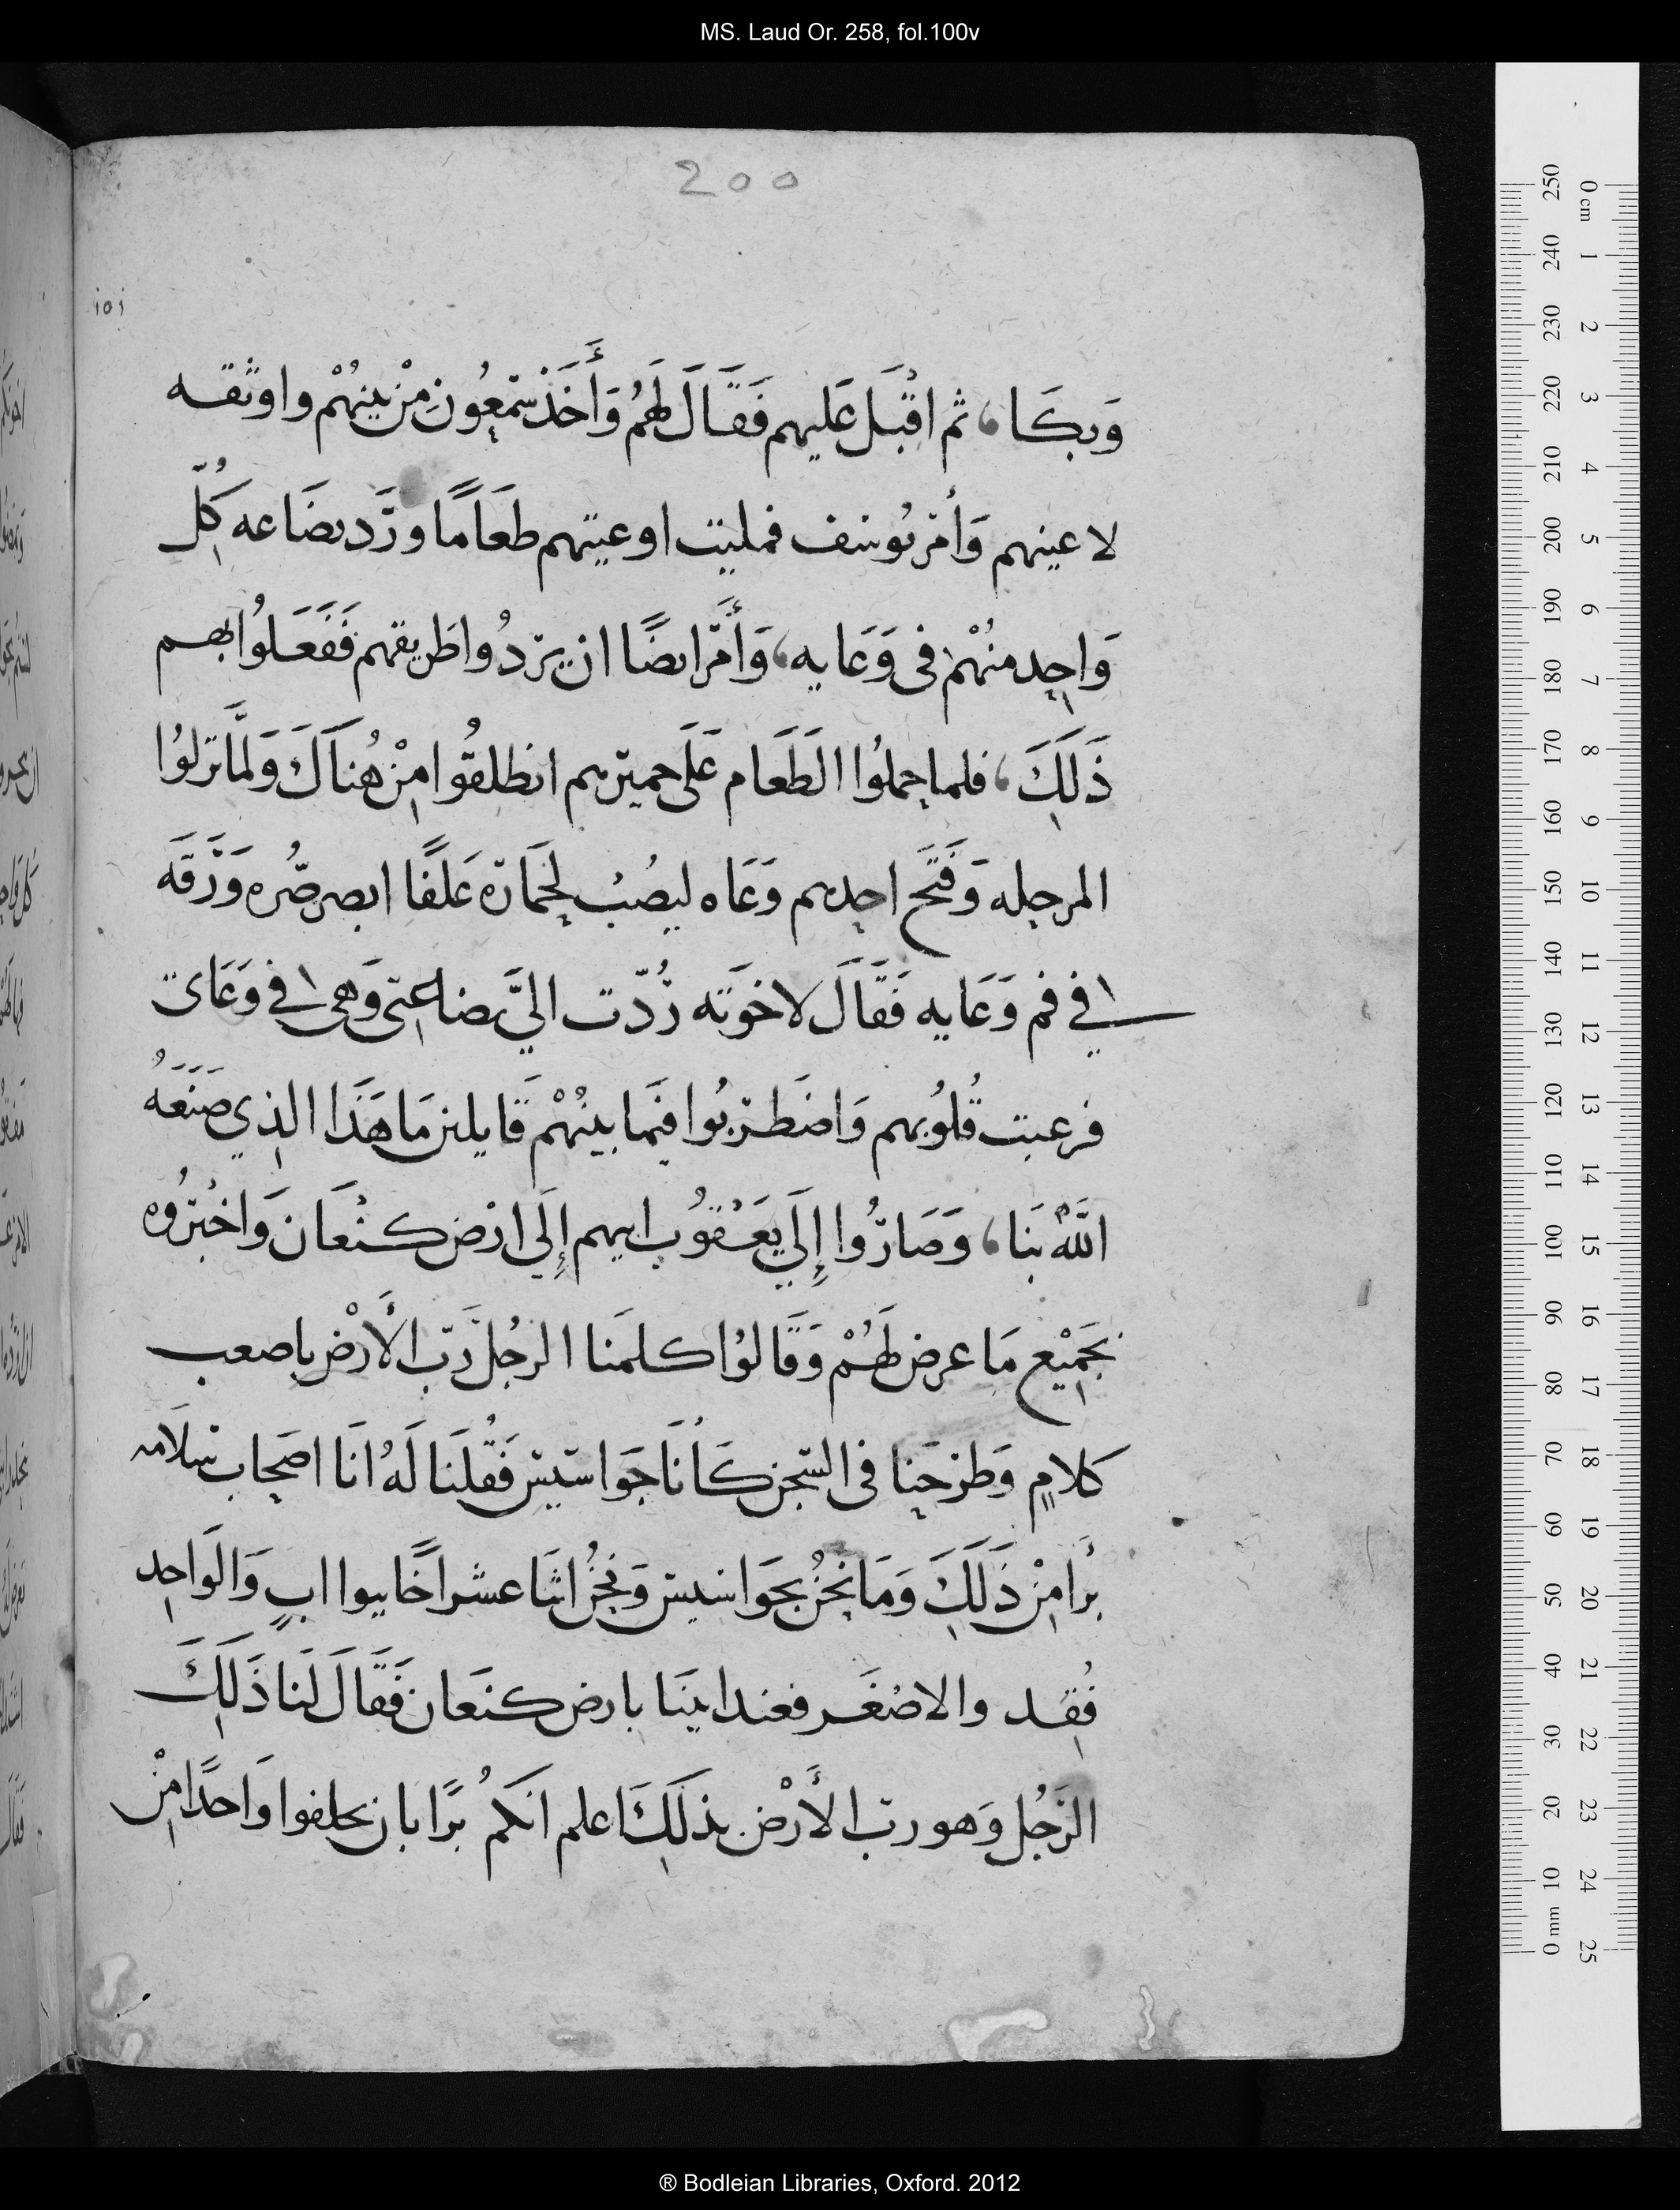 MS. Laud Or. 258, fol.100v
200
101
وَبكَا، ثم اقْبَل عَليهم فَقَالَ لَهمُ وَأَخَذ سَمِعُون مِنْ بينهُمْ واوثقه
لاعينهم وَأمَر يُوسَف فمليت اوعيتهم طعَامًا وردَّ بضَاعه كُلّ
وَاحِد منهُمْ فى وَعَايه، وَأَمَر ايضًا ان يزدُوا طَريقهم فَفَعَلُوا بهم
ذَلَكَ، فلما حملوُا الطَعَام عَلَى حميرهم انطلقُوا مِنْ هُنَاكَ وَلمَّا نزلوُا
المرحله وَفَتَح احدهم وَعَاه ليصُبُ لِحَمَارَه عَلفًا ابصر صُّره وَرَقَه
في فم وَعَايه فَقَالَ لاخوَته رُدّت اليَّ بضاعتى وَهى في وَعَاى
فرعبت قُلوُبهم وَاضَطرَبُوا فيَما بينهُمْ قَايلين مَا هَذَا الذِي صَنَعَهُ
اللَّهُ بنَا، وَصَارُوا إِلَي يَعْقوُب ابيهم إِلَي ارْض كنْعَان وَاخْبَرُوه
بجَمِيْع مَا عرض لَهُمْ وَقَالوُا كلمَنا الرجُل رَبّ الأَرْض باصعب
كلامٍ وَطرَحَنا فى السَجن كَأنَا جَوَاسَيس فَقُلنَا لَهُ انَا اصَحاب سَلامه
برأ مِنْ ذَلَكَ وَمَا نَحنُ بجَوَاسيس وَنحْنُ اثنَا عشر اخًا بنوا ابٍ وَالوَاحِد
فُقِد والاصْغَر فعند ابينَا بارض كنعَان فَقَالَ لَنَا ذَلَكَ
الرَجُل وَهو رب الأَرْض بذلَكَ اعلم انَكمُ برًا بان تخلفوا وَاحدًا مِنْ
® Bodleian Libraries, Oxford. 2012